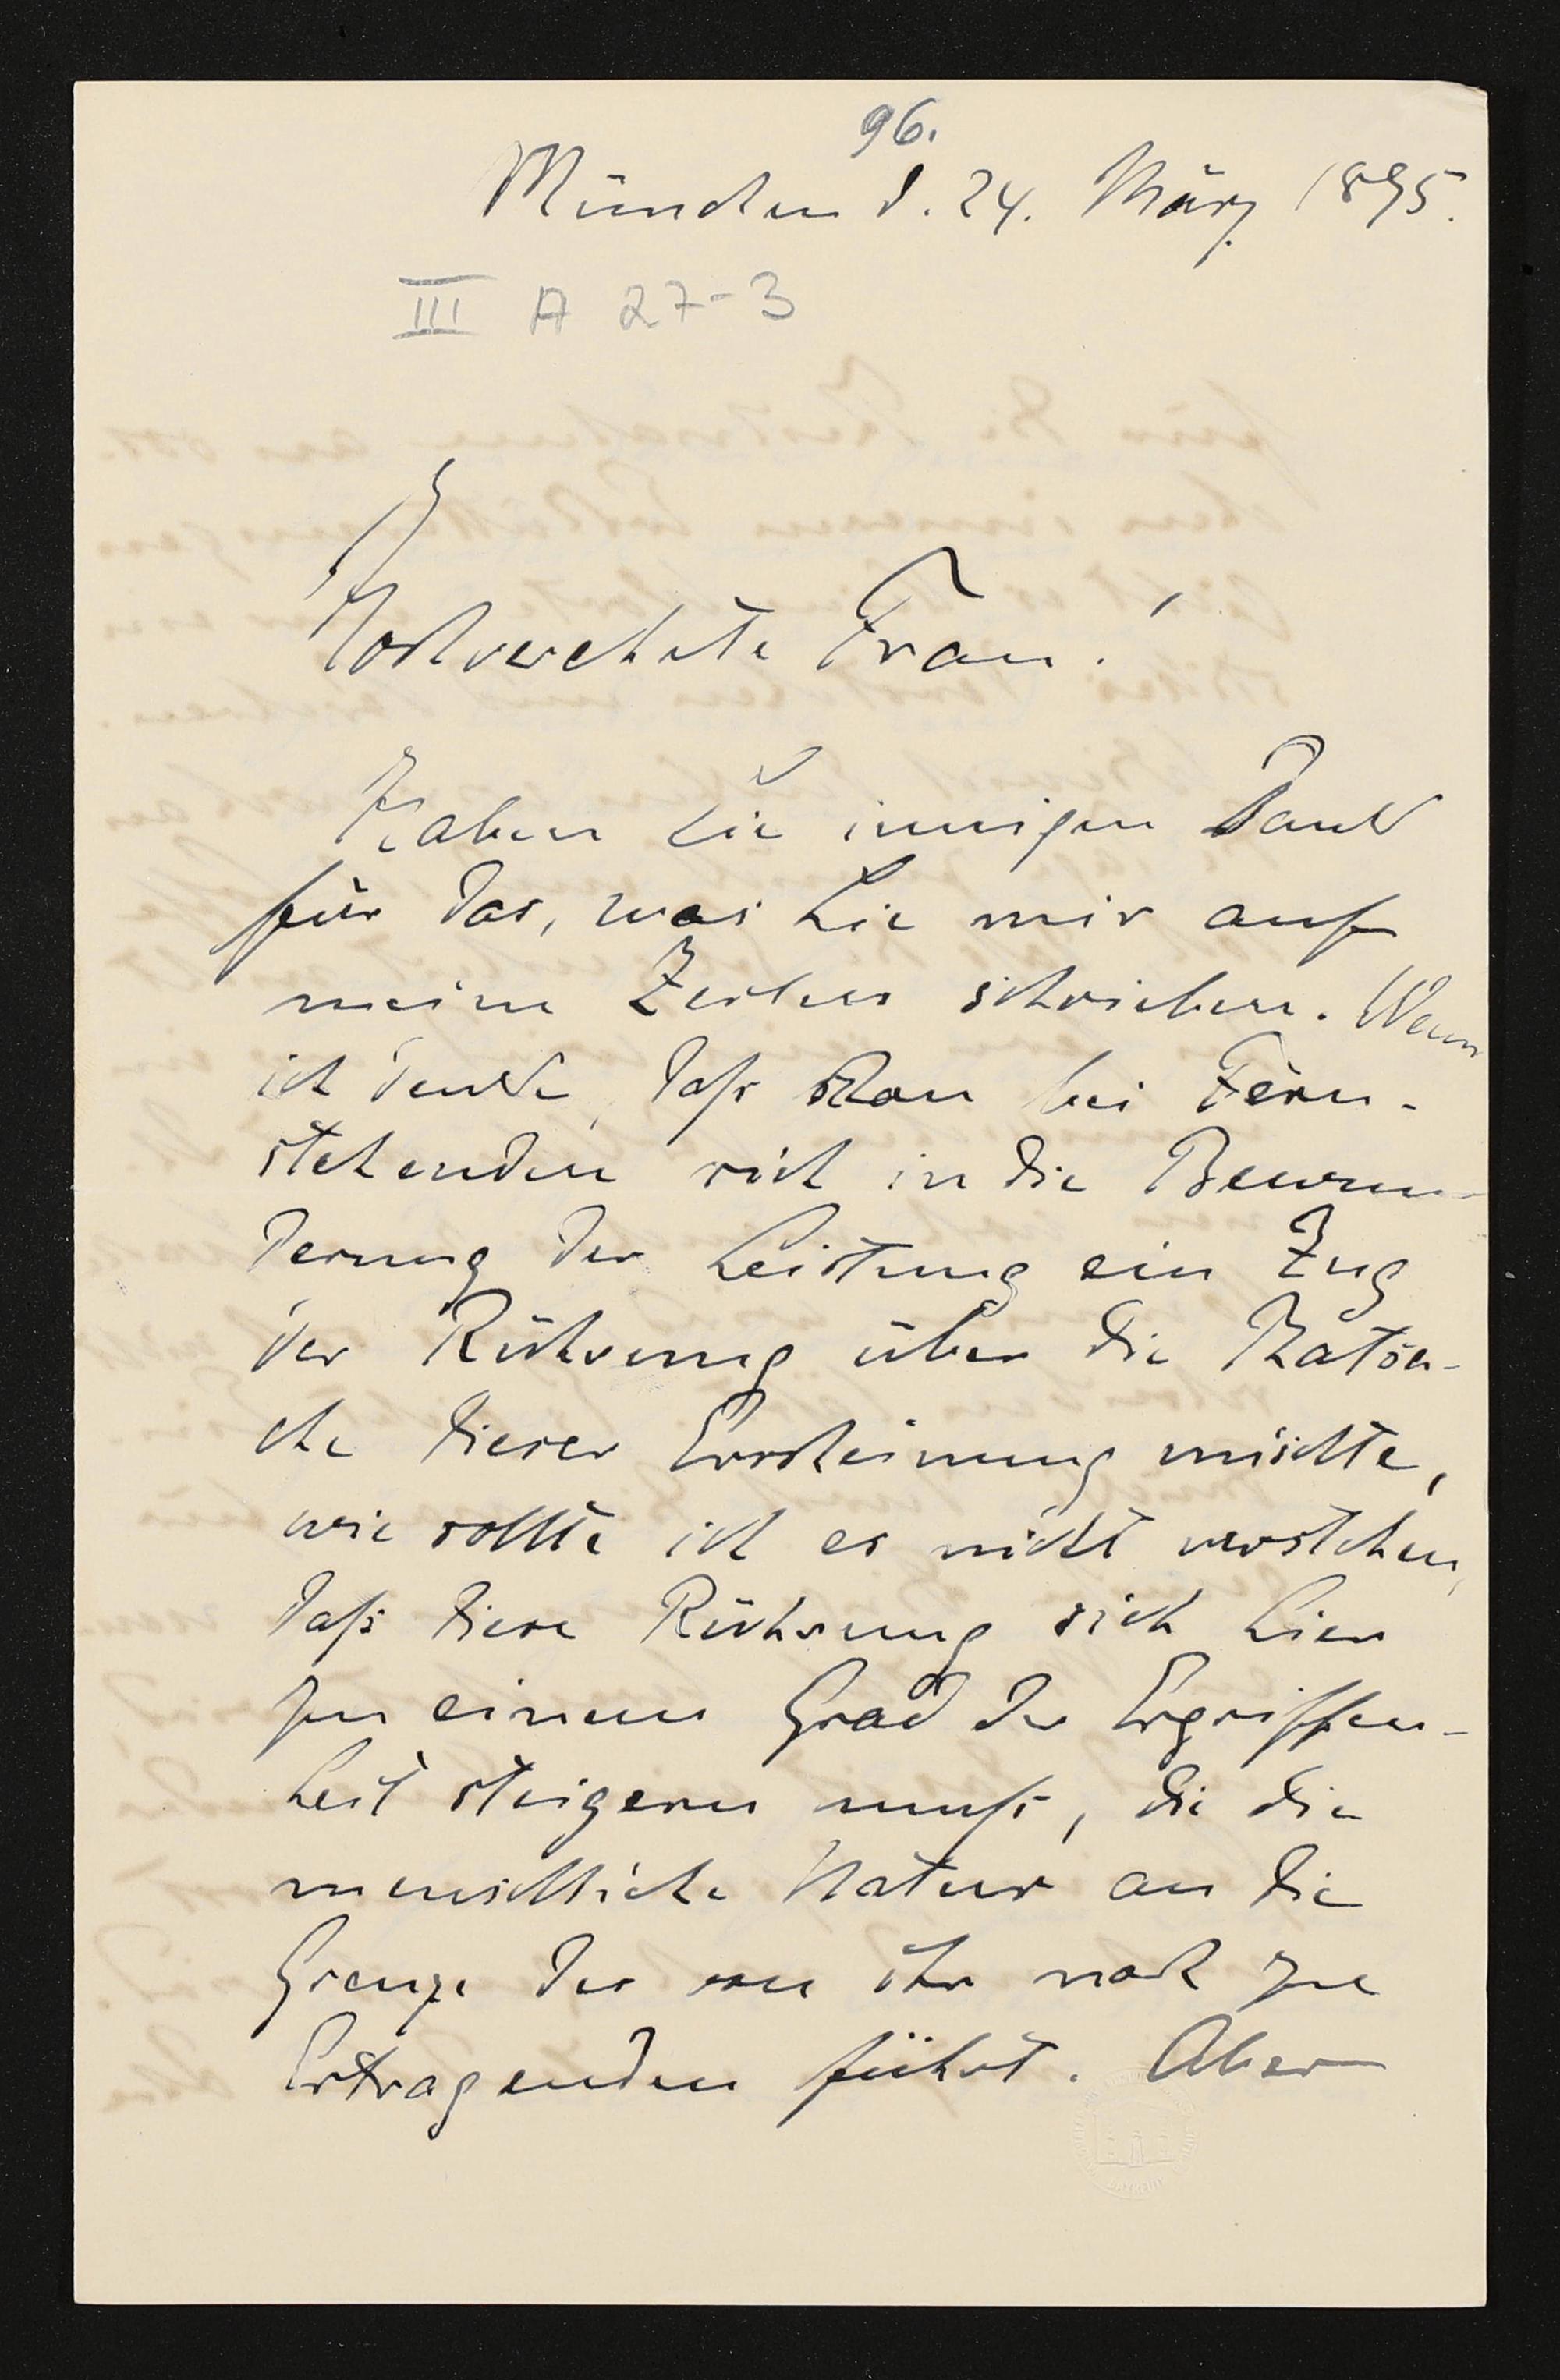 96.
München d. 24. März 1895.
III A 27-3
Hochverehrte Frau!
Haben Sie innigen Dank
für das, was Sie mir auf
meine Zeilen schrieben. Wenn
ich denke, daß schon bei Fern-
stehenden sich in die Bewun-
derung der Leistung ein Zug
der Rührung über die Thatsa-
che dieser Erscheinung mischte,
wie sollte ich es nicht verstehen,
daß diese Rührung sich hier
zu einem Grad der Ergriffen-
heit steigern muß, die die
menschliche Natur an die
Grenze des von ihr noch zu
Ertragenden führt. Aber